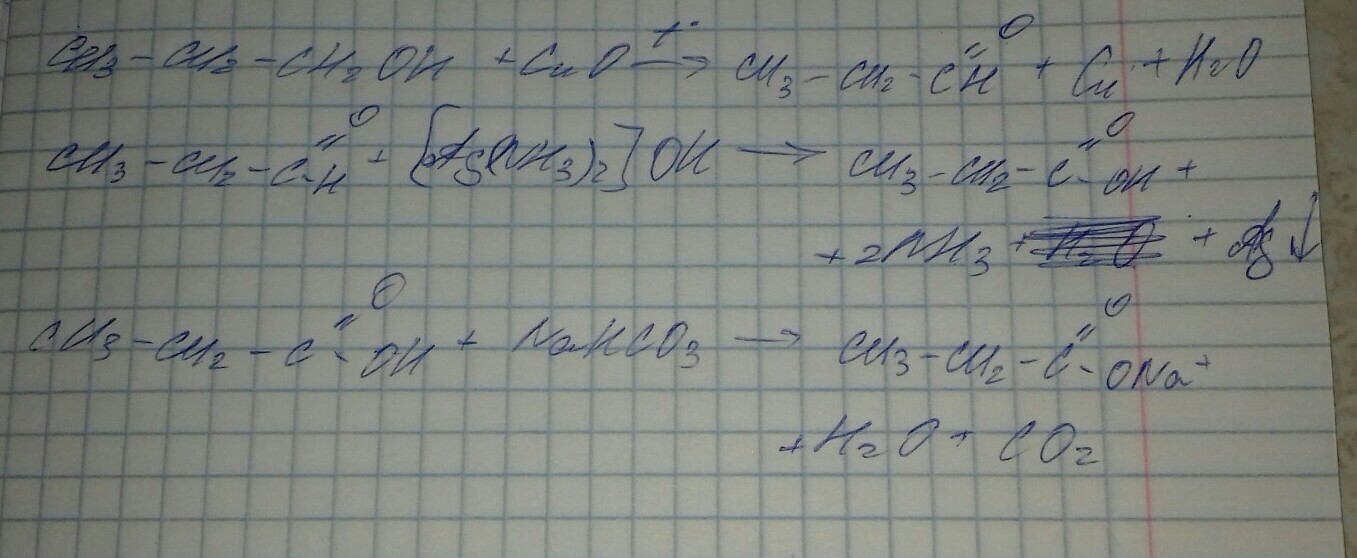 CH3 - CH2 - CH2OH + CuO t→ CH3 - CH2 - C=OH + Cu + H2O
CH3 - CH2 - C=O-H + [Ag(NH3)2]OH → CH3 - CH2 - C=O-OH +
+ 2NH3 + H2O + Ag↓
CH3 - CH2 - C=O-OH + NaHCO3 → CH3 - CH2 - C=O-ONa +
+ H2O + CO2